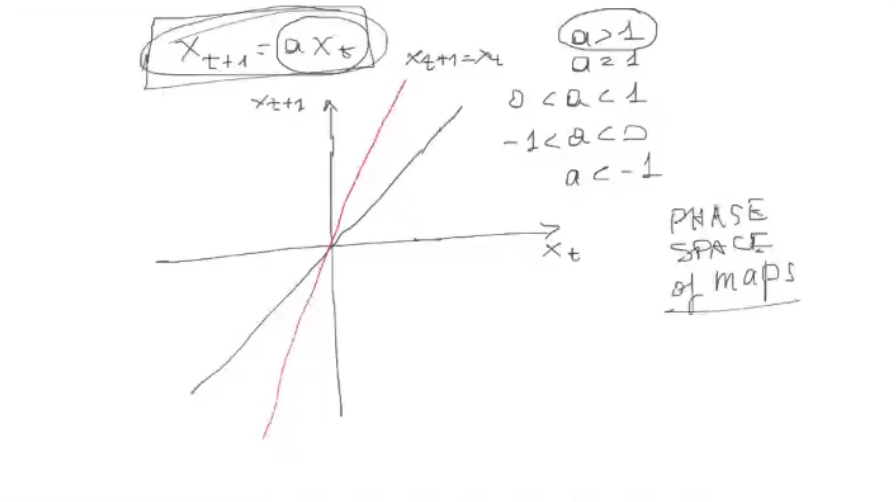 x_{t+1} = a x_t
x_{t+1} = x_t
x_{t+1}
x_t
a > 1
a = 1
0 < a < 1
-1 < a < 0
a < -1
PHASE
SPACE
of maps